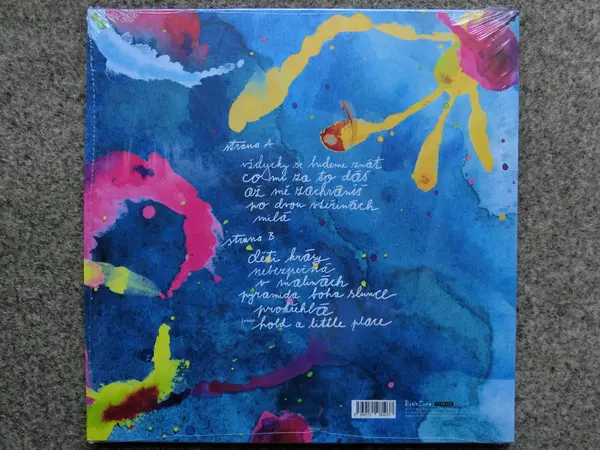 strana A
vždycky se budeme znát
co mi za to dáš
až mě zachráníš
po dvou vteřinách
milá
strana B
děti krásy
nebezpečná
v malinách
pyramida boha slunce
prohřéblá
hold a little place